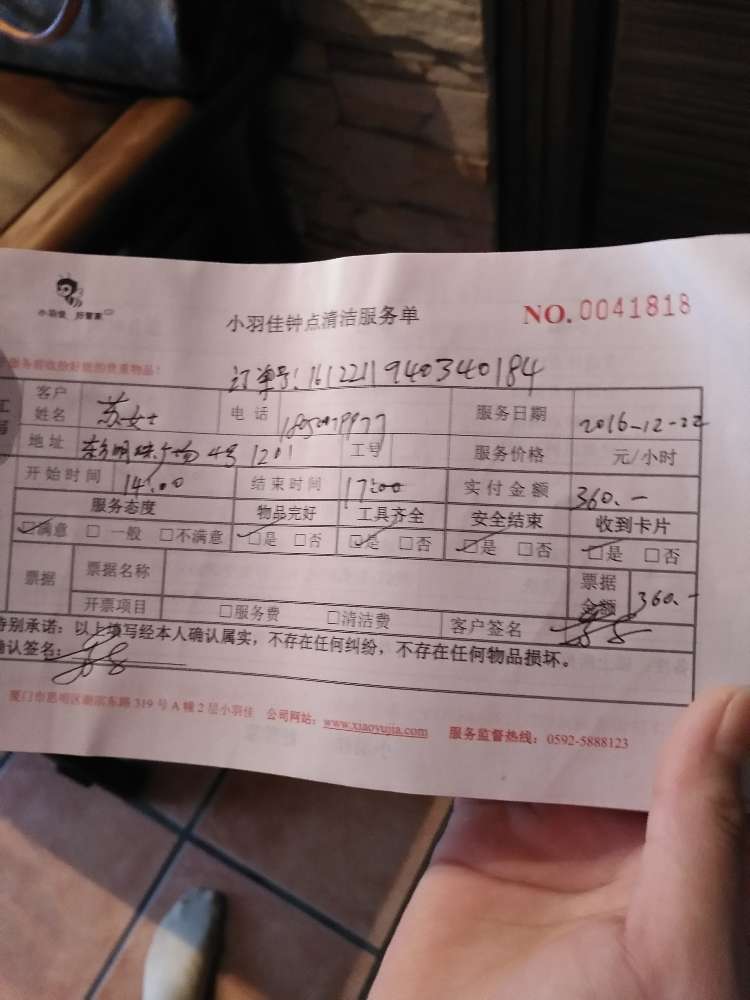 小羽佳 好管家
小羽佳钟点清洁服务单
NO. 0041818
服务前收拾好您的贵重物品!
订单号: 1612211940340184
客户姓名 苏女士 电话 服务日期 2016-12-22
地址 明珠广场 4号 1201 工号 服务价格 元/小时
开始时间 14:00 结束时间 17:00 实付金额 360.-
服务态度 物品完好 工具齐全 安全结束 收到卡片
☑满意 □一般 □不满意 ☑是 □否 ☑是 □否 ☑是 □否 ☑是 □否
票据 票据名称 票据金额 360.-
开票项目 □服务费 □清洁费 客户签名
特别承诺：以上填写经本人确认属实，不存在任何纠纷，不存在任何物品损坏。
确认签名：
厦门市思明区湖滨东路 319 号 A 幢 2 层小羽佳 公司网站：www.xiaoyujia.com 服务监督热线：0592-5888123